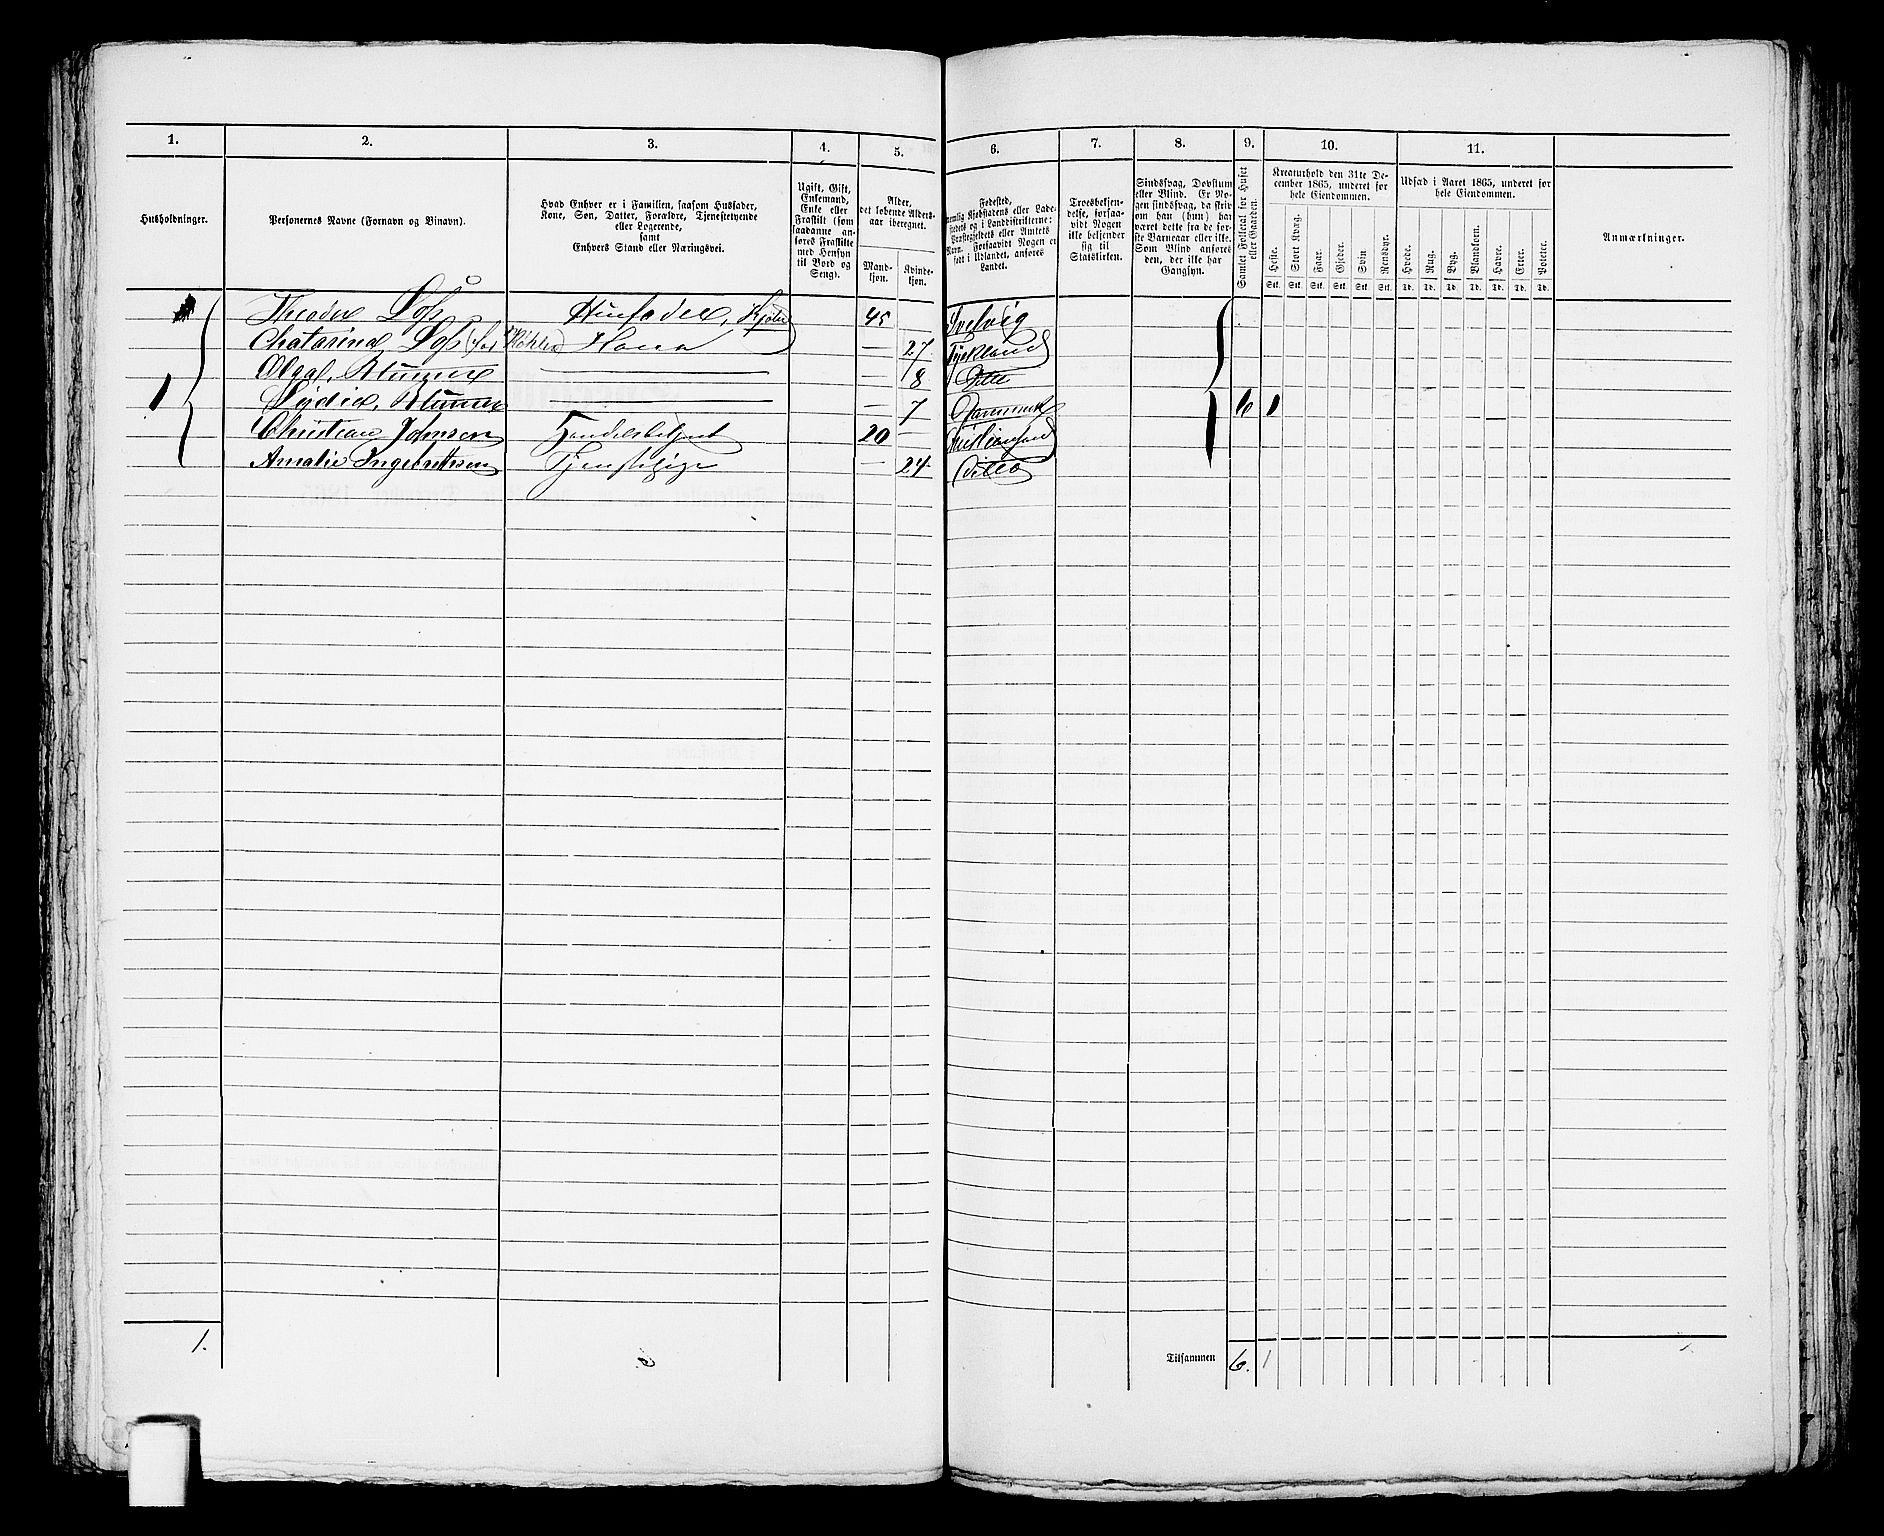 1. 2. 3. 4. 5. 6. 7. 8. 9. 10. 11.
Husholdninger.
Personernes Navne (Fornavn og Binavn).
Hvad Enhver er i Familien, saasom Husfader,
Kone, Søn, Datter, Forældre, Tjenestetyende
eller Logerende,
samt
Enhvers Stand eller Næringsvei.
Ugift, Gift,
Enkemand,
Enke eller
Fraskilt (som
saadanne an-
føres Fraskilte
med Hensyn
til Bord og
Seng).
Alder,
det løbende Alders-
aar iberegnet.
Mand-
kjøn.
Kvinde-
kjøn.
Fødested,
nemlig Kjøbstadens eller Lade-
stedets og i Landdistrikterne:
Præstegjeldets eller Amtets
Navn. Forsaavidt Nogen er
født i Udlandet, anføres
Landet.
Troesbekjen-
delse, forsaa-
vidt Nogen
ikke bekjender
sig til
Statskirken.
Sindssvag, Døvstum
eller Blind. Er No-
gen sindssvag, da skriv
om han (hun) har
været dette fra de før-
ste Barneaar eller ikke.
Som Blind anføres
den, der ikke har
Gangsyn.
Samlet Folketal for Huset
eller Gaarden.
Kreaturhold den 31te De-
cember 1865, underet for
hele Eiendommen.
Heste. Stort Kvæg. Faar. Gjeder. Svin Rensdyr.
Stk. Stk. Stk. Stk. Stk. Stk.
Udsæd i Aaret 1865, underet for
hele Eiendommen.
Hvede. Rug. Byg. Blandkorn. Havre. Erter. Poteter.
Td. Td. Td. Td. Td. Td. Td.
Anmærkninger.
Theodor Husfader, 45 Svelvig
Chatarina Kona — 27 Tyskland
— 8 Ditto
1 — 7 Danmark 6 1
Christian Johnsen Handelsbetjent 20 — Christiansand
Amalie Ingebretsen Tjenstepige — 24 Ditto
1. Tilsammen 6. 1